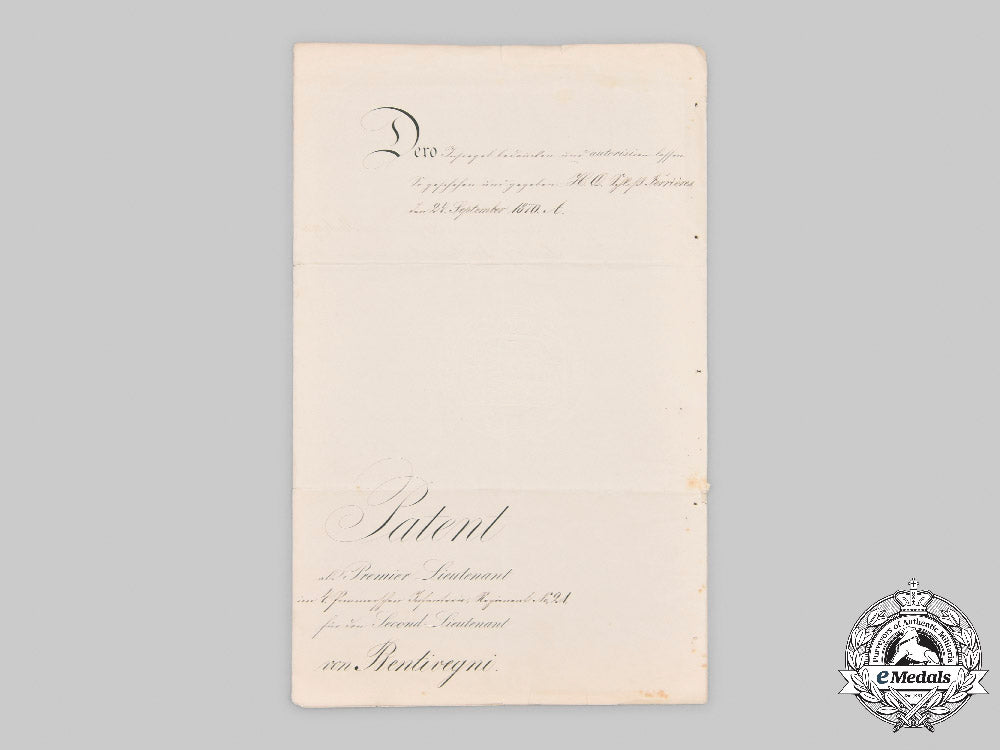 Dero Insiegel bedrucken und autorisiren lassen
So geschehen und gegeben H. Q. Schloß Ferrières
den 24. September 1870. A.
Patent
als Premier-Lieutenant
im 4. Pommerschen Infanterie-Regiment No. 21,
für den Second-Lieutenant
von Bentivegni.
Purveyors of Authentic Militaria
eMedals